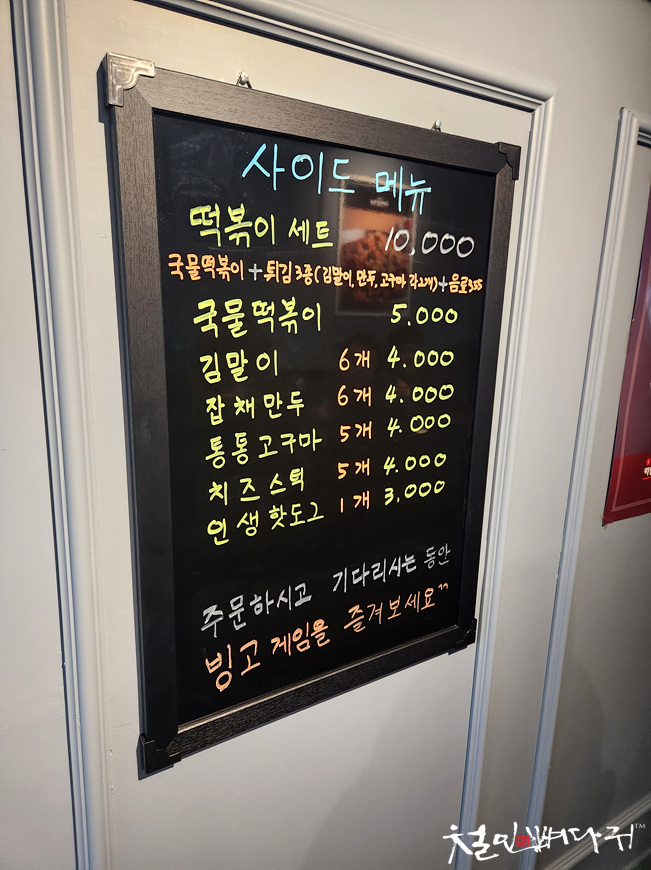 사이드 메뉴
떡볶이 세트 10,000
국물떡볶이+튀김3종(김말이,만두,고구마 각2개)+음료355
국물떡볶이 5.000
김말이 6개 4.000
잡채만두 6개 4.000
통통고구마 5개 4.000
치즈스틱 5개 4.000
인생핫도그 1개 3.000
주문하시고 기다리시는 동안
빙고게임을 즐겨보세요^^
철인 뼈다귀™